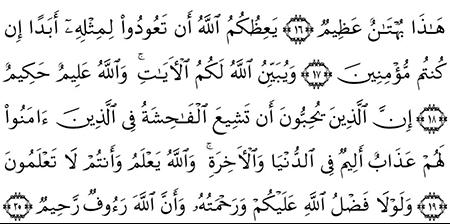 هَـٰذَا بُهْتَـٰنٌ عَظِيمٌ ﴿١٦﴾ يَعِظُكُمُ ٱللَّهُ أَن تَعُودُوا۟ لِمِثْلِهِۦٓ أَبَدًا إِن
كُنتُم مُّؤْمِنِينَ ﴿١٧﴾ وَيُبَيِّنُ ٱللَّهُ لَكُمُ ٱلْأَيَـٰتِ ۚ وَٱللَّهُ عَلِيمٌ حَكِيمٌ
﴿١٨﴾ إِنَّ ٱلَّذِينَ يُحِبُّونَ أَن تَشِيعَ ٱلْفَـٰحِشَةُ فِى ٱلَّذِينَ ءَامَنُوا۟
لَهُمْ عَذَابٌ أَلِيمٌ فِى ٱلدُّنْيَا وَٱلْأَخِرَةِ ۚ وَٱللَّهُ يَعْلَمُ وَأَنتُمْ لَا تَعْلَمُونَ
﴿١٩﴾ وَلَوْلَا فَضْلُ ٱللَّهِ عَلَيْكُمْ وَرَحْمَتُهُۥ وَأَنَّ ٱللَّهَ رَءُوفٌ رَّحِيمٌ ﴿٢٠﴾